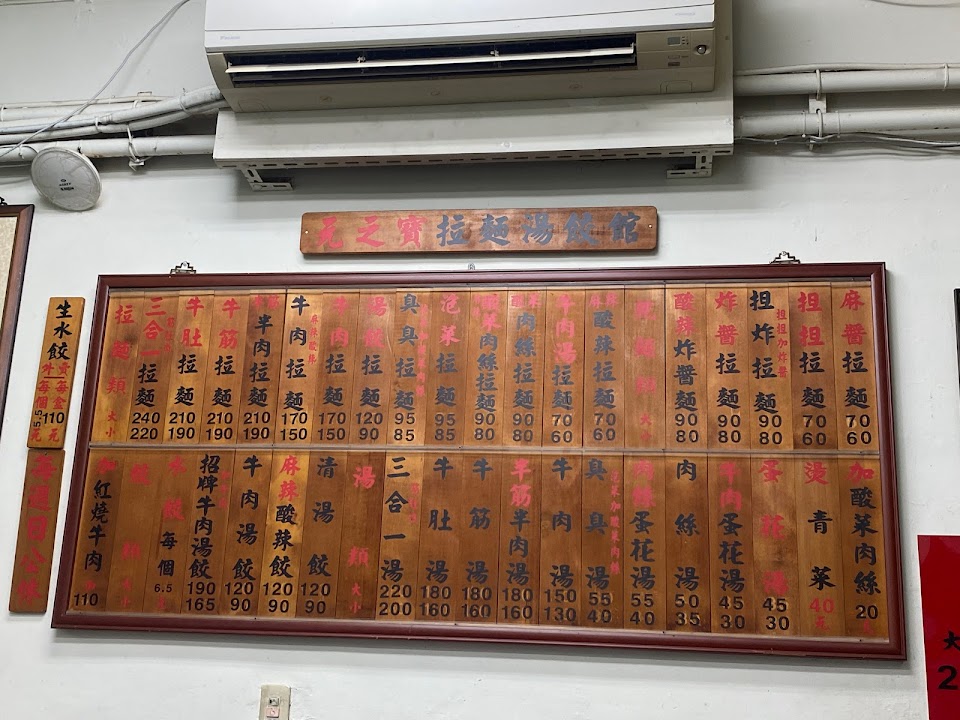 元之寶拉麵湯餃館
生水餃
賣每盒110元
生每個5.5元
每週日公休
拉麵類 大小
三合一拉麵 240 220
牛肚拉麵 210 190
牛筋拉麵 210 190
半肉拉麵 210 190
牛肉拉麵 麻辣酸辣 170 150
牛肉拉麵 170 150
湯餃拉麵 120 90
臭臭拉麵 95 85
泡菜拉麵 95 85
酸菜肉絲拉麵 90 80
肉絲拉麵 90 80
牛肉湯拉麵 70 60
麻辣酸辣拉麵 70 60
乾麵類 大小
酸辣炸醬麵 90 80
炸醬拉麵 90 80
担炸拉麵 担担加炸醬 90 80
担担拉麵 70 60
麻醬拉麵 70 60
加紅燒牛肉 110
餃類 大小
水餃每個 6.5元
招牌牛肉湯餃 190 165
牛肉湯餃 120 90
麻辣酸辣餃 120 90
清湯餃 120 90
湯類 大小
三合一湯 220 200
牛肚湯 180 160
牛筋湯 180 160
半筋半肉湯 180 160
牛肉湯 150 130
臭臭湯 55 40
肉絲蛋花湯 55 40
肉絲湯 50 35
牛肉蛋花湯 45 30
蛋花湯 45 30
燙青菜 40元
加酸菜肉絲 20
大
2